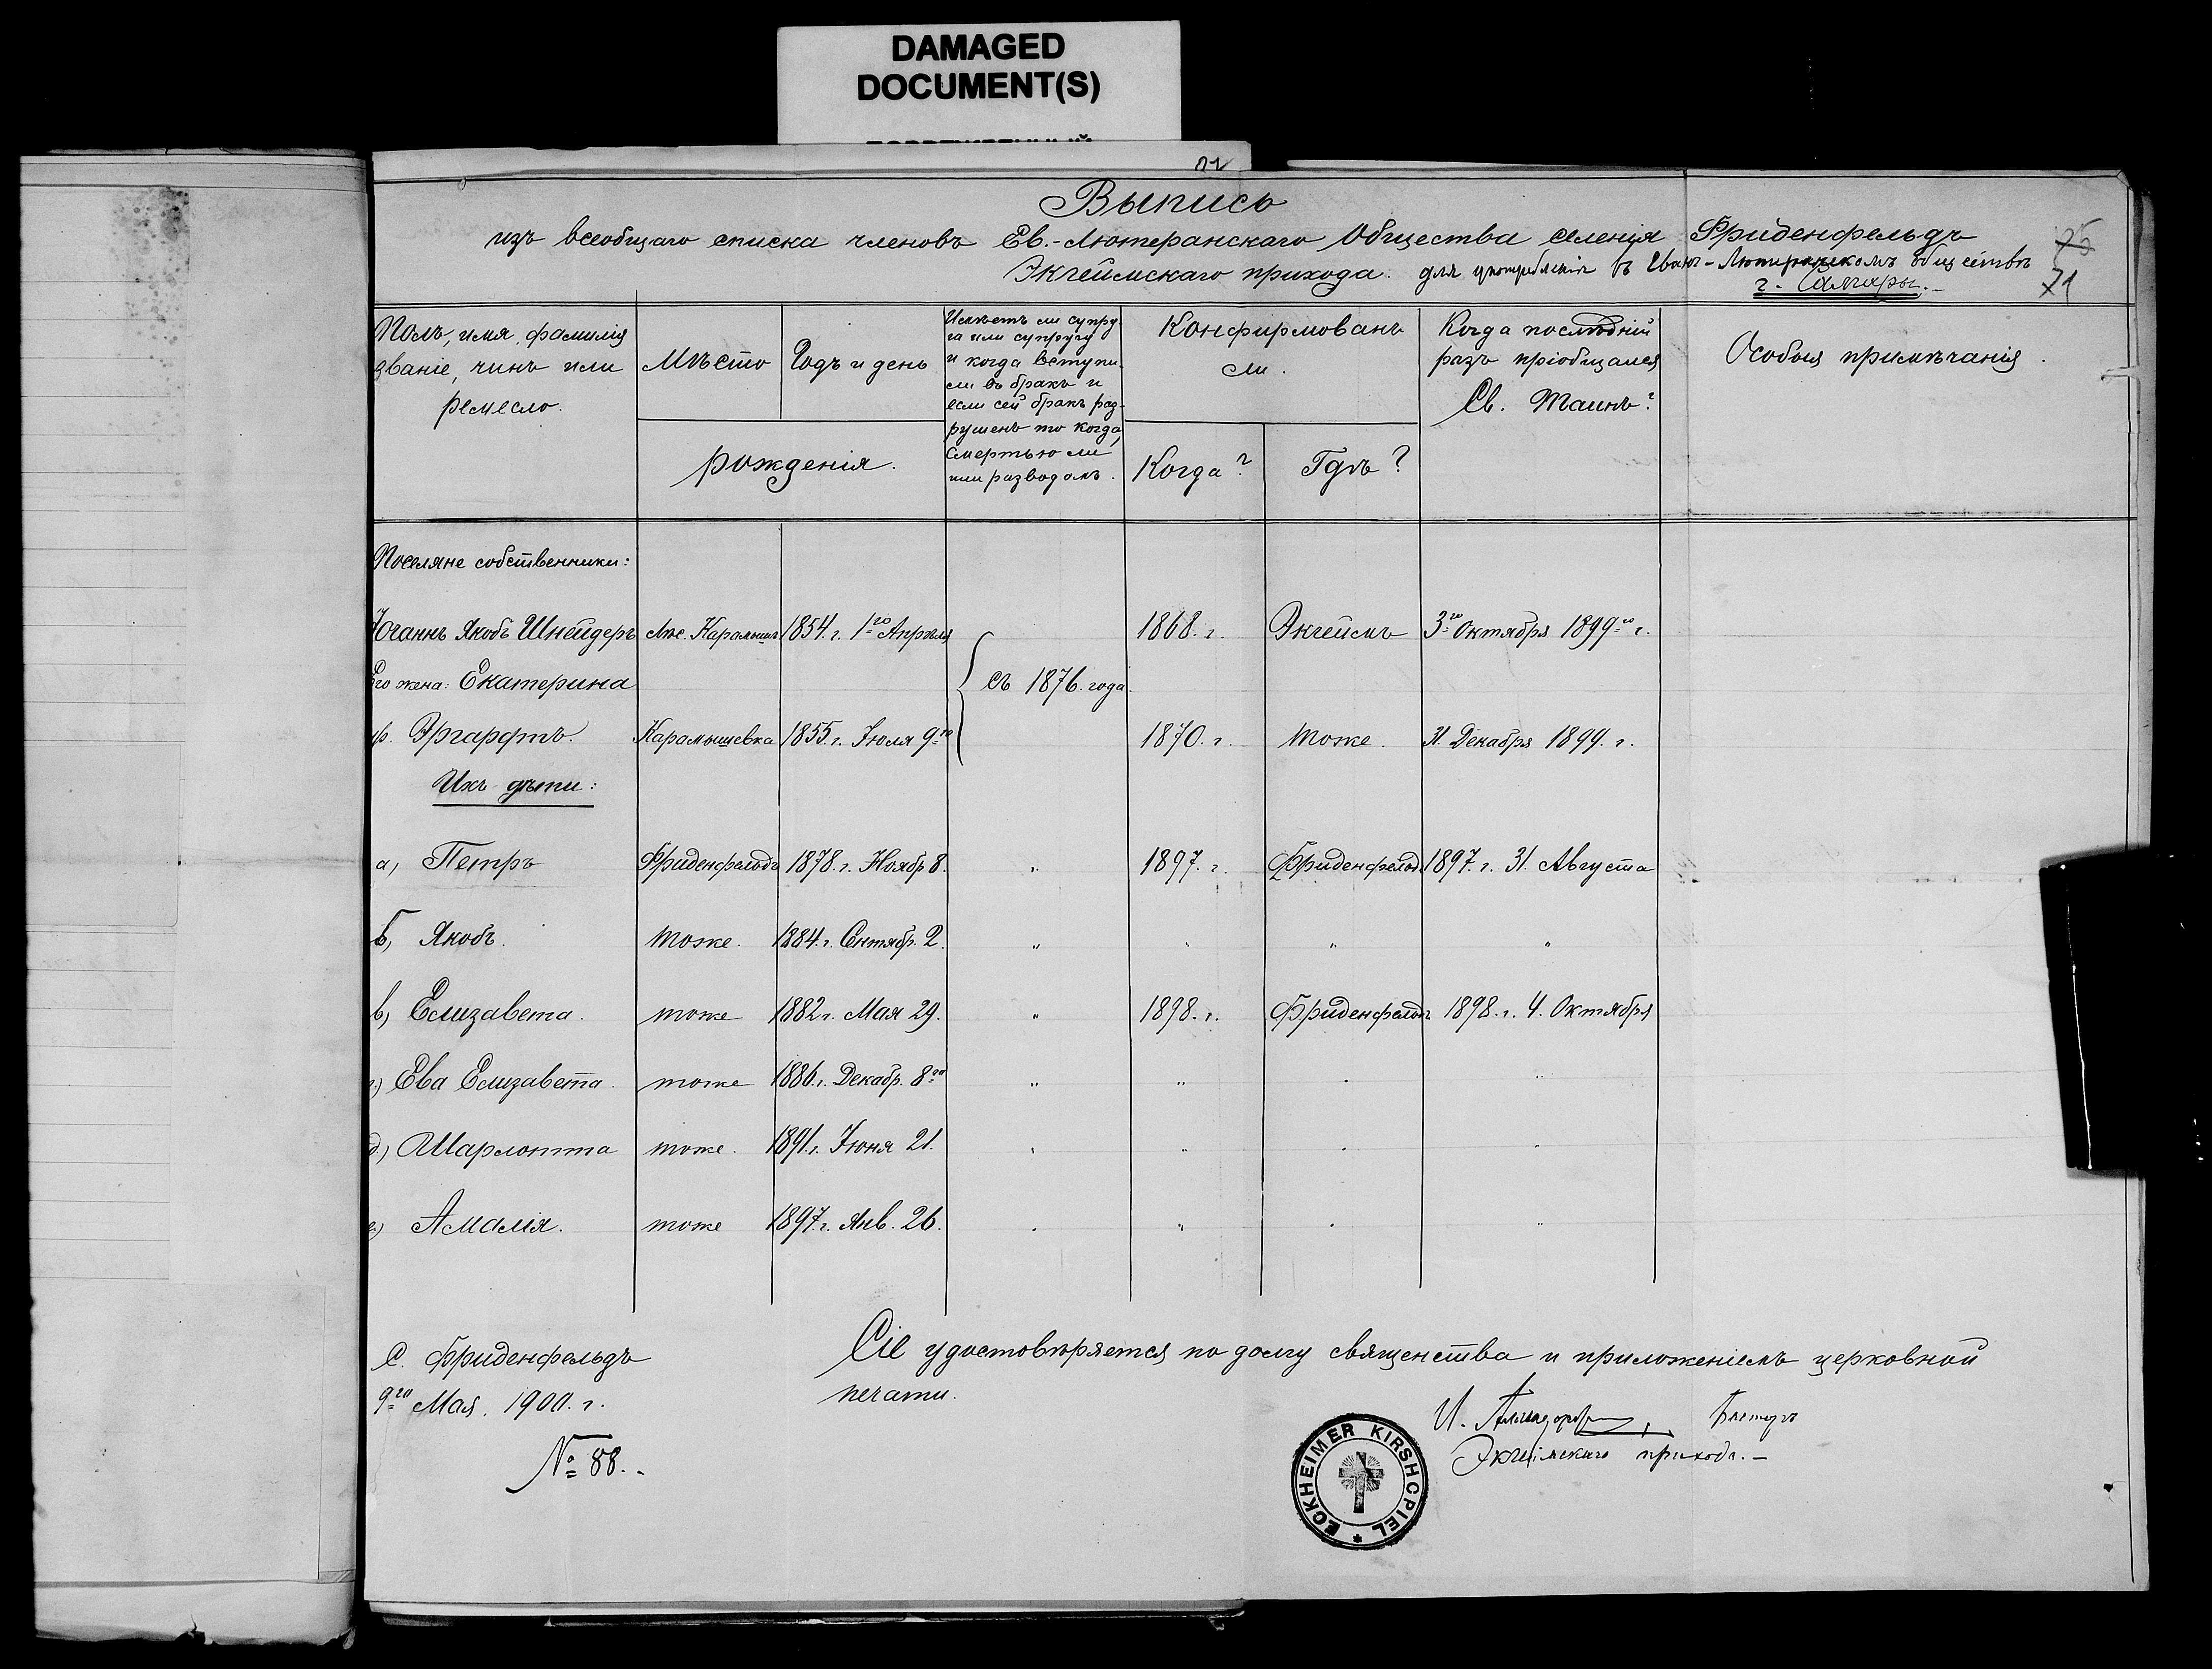 DAMAGED
DOCUMENT(S)
Выпись
изъ всеобщаго списка членовъ Ев.-Лютеранскаго Общества селенія Фриденфельдъ
Экгеймскаго прихода. для употребленія въ Еванг-Лютеранскомъ обществѣ
г. Самары.-
71
Полъ, имя, фамилія
званіе, чинъ или
ремесло.
Мѣсто
Годъ и день
рожденія.
Имѣетъ ли супру-
га или супругу
и когда вступи-
ли въ бракъ и
если сей бракъ раз-
рушенъ то когда,
смертью ли
или разводомъ.
Конфирмованъ
ли.
Когда?
Гдѣ?
Когда послѣдній
разъ пріобщался
Св. Таинъ?
Особыя примѣчанія.
Поселяне собственники:
Іоганнъ Якобъ Шнейдеръ 1854. г. 1го Апрѣля 1868. г. Экгеймъ 3го Октября 1899го г.
Его жена: Екатерина съ 1876. года.
ур. Эргардтъ. Карамышевка 1855. г. Іюля 9го 1870. г. тоже. 31. Декабря 1899. г.
Ихъ дѣти:
а, Петръ Фриденфельдъ 1878. г. Ноябр 8. " 1897. г. Фриденфельдъ 1897. г. 31. Августа
б, Якобъ. тоже. 1884. г. Сентябр. 2. " " " "
в, Елизавета. тоже 1882 г. Мая 29. " 1898. г. Фриденфельдъ 1898. г. 4. Октября
г) Ева Елизавета. тоже 1886. г. Декабр. 8го " " " "
д) Шарлотта тоже. 1891. г. Іюня 21. " " " "
е) Амалія. тоже 1897. г. Янв. 26. " " " "
С. Фриденфельдъ
9го Мая. 1900. г.
№ 88.
Сіе удостовѣряется по долгу священства и приложеніемъ церковной
печати.
И. Пасторъ
Экгеймскаго прихода.-
ECKHEIMER KIRSHCPIEL *